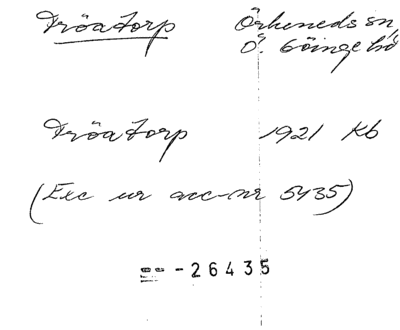 Tröatorp Örkeneds sn,
Ö. Göinge hd
Tröatorp 1921 Kb
(Exc ur acc-nr 5435)
== -26435